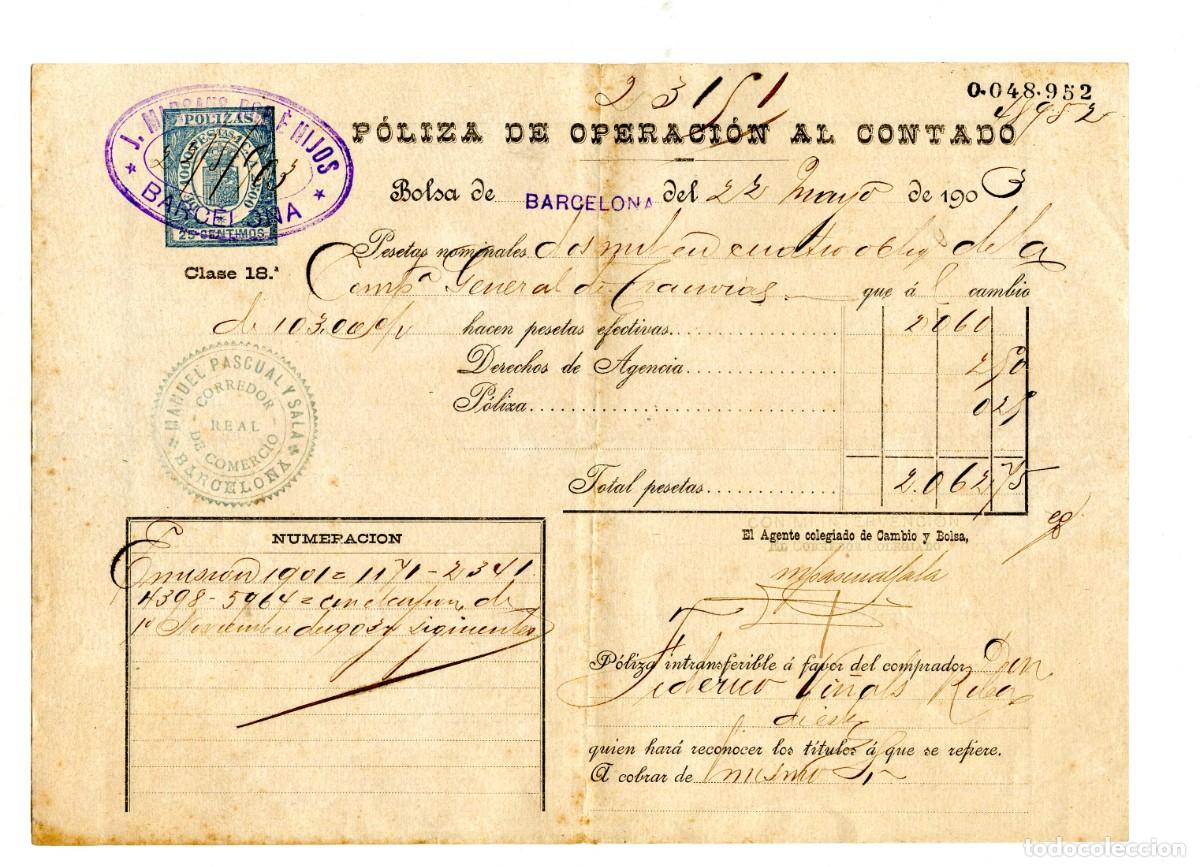 2315
0.048.952
48952
J. MARSANS ROF É HIJOS
BARCELONA
POLIZAS
25 CENTIMOS
Clase 18.ª
PÓLIZA DE OPERACIÓN AL CONTADO
Bolsa de BARCELONA del 22 Mayo de 1903
Pesetas nominales dos mil en cuatro oblig de la
Compª General de Tranvias que á l cambio
de 103.00 o/o hacen pesetas efectivas 2060
Derechos de Agencia 2 50
Póliza 0 25
Total pesetas 2.062 75
MANUEL PASCUAL Y SALA
CORREDOR
REAL
DE COMERCIO
BARCELONA
El Agente colegiado de Cambio y Bolsa,
MPascualSala
NUMERACION
Emisión 1901 = 1171 - 2341
4398 - 5964 = con el cupon de
1º Noviembre de 1903 y siguientes
Póliza intransferible á favor del comprador Don
Federico Viñals Ribas
de esta
quien hará reconocer los títulos á que se refiere.
A cobrar de l mismo Sr
todocoleccion